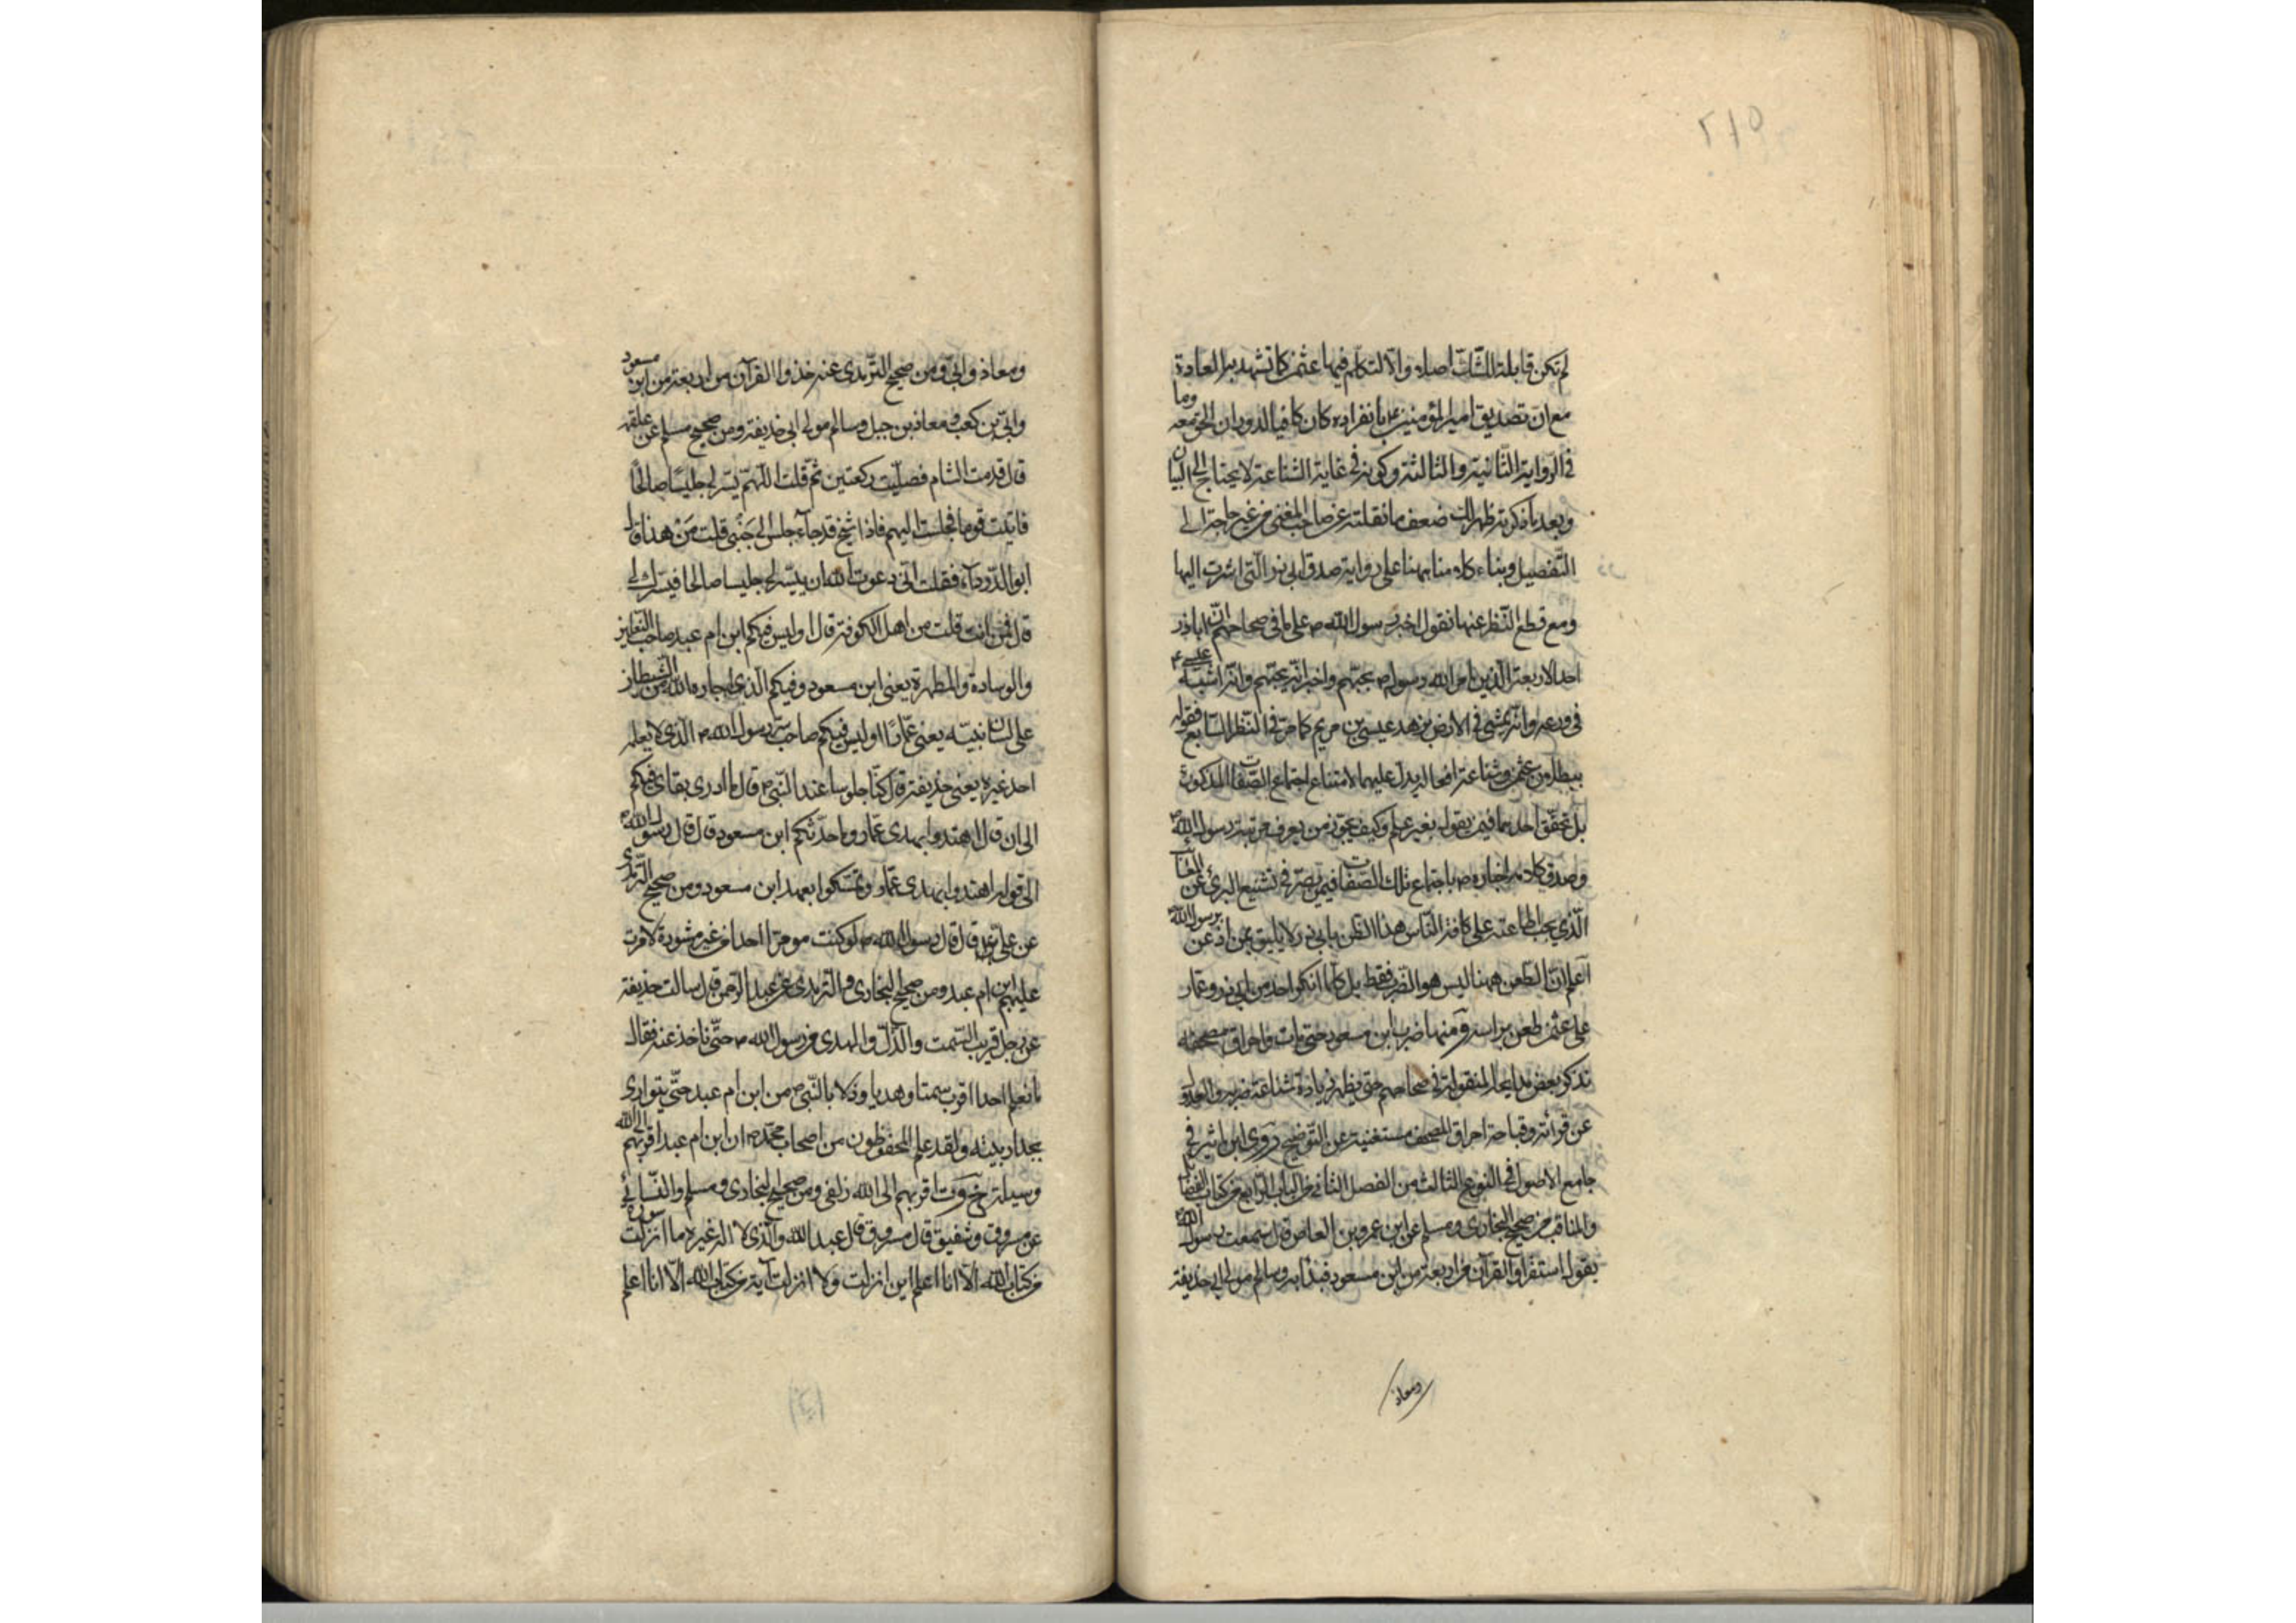 ٢١٥
لم تكن قابلة للشك اصلا والا لتكلم فيها عثمن كما تشهد به العادة
مع ان تصديق امير المؤمنين ع بانفراده كان كافيا لدوران الحق معه وما
فى الرواية الثانية والثالثة وكونه فى غاية الشناعة لا يحتاج الى البيان
وبعد ما ذكرته ظهر لك ضعف ما نقلته عن صاحب المغنى من غير حاجة الى
التفصيل وبناء كلامنا ههنا على رواية صدق ابى ذر التى اشرت اليها
ومع قطع النظر عنها نقول اخبر رسول الله ص على ما فى صحاحهم ان اباذر
احد الاربعة الذين امر الله رسوله ص بحبهم واخبر انه يحبهم وانه اشبه عيسى ع
فى ورعه وانه يمشى فى الارض بزهد عيسى بن مريم كما مر فى النظر السابع فقوله
ببطلان عثمن وشناعة افعاله يدل عليهما لامتناع اجتماع الصفات المذكورة
بل تحقق احدهما فيمن يقول بغير علم وكيف يجوز من يعرف مرتبة رسول الله ص
وصدق كلامه اخباره ص باجتماع تلك الصفات فيمن يصر فى تشنيع البرئ عن
الذى يجب اطاعته على كافة الناس هذا الظن بابى ذر لا يليق بمن اذعن برسول الله ص
اعلم ان الطعن ههنا ليس هو الضرب فقط بل كلما انكر واحد من ابى ذر وعمار
على عثمن طعن براسه ومنها ضرب ابن مسعود حتى مات واحراق مصحفه
نذكر بعض مدايحه المنقولة فى صحاحهم حتى يظهر زيادة شناعة ضربه والعدول
عن قرأته وقباحة احراق المصحف مستغنية عن التوضيح روى ابن اثير فى
جامع الاصول فى النوع الثالث من الفصل الثانى من الباب الرابع من كتاب الفضائل
والمناقب من صحيح البخارى ومسلم عن ابن عمرو بن العاص قال سمعت رسول الله ص
يقول استقرأوا القرآن من اربعة من ابن مسعود فبدأ به وسالم مولى ابى حذيفة
ومعاذ
ومعاذ وابى ومن صحيح الترمذى عنه خذوا القرآن من اربعة من ابن مسعود
وابى بن كعب ومعاذ بن جبل وسالم مولى ابى حذيفة ومن صحيح مسلم عن علقمة
قال قدمت الشام فصليت ركعتين ثم قلت اللهم يسر لى جليسا صالحا
فاتيت قوما فجلست اليهم فاذا شيخ قد جاء جلس الى جنبى قلت من هذا قال
ابو الدرداء فقلت انى دعوت الله ان ييسر لى جليسا صالحا فيسرك لى
قال فمن انت قلت من اهل الكوفة قال اوليس فيكم ابن ام عبد صاحب النعلين
والوسادة والمطهرة يعنى ابن مسعود وفيكم الذى اجاره الله من الشيطان
على لسان نبيه يعنى عمارا اوليس فيكم صاحب سر رسول الله ص الذى لا يعلمه
احد غيره يعنى حذيفة قال كنا جلوسا عند النبى ص قال ما ادرى بقائى فيكم
الى ان قال اهتدوا بهدى عمار وما حدثكم ابن مسعود قال قال رسول الله ص
الى قوله اهتدوا بهدى عمار وتمسكوا بعهد ابن مسعود ومن صحيح الترمذى
عن على ع قال قال رسول الله ص لو كنت مؤمرا احدا من غير مشورة لامرت
عليهم ابن ام عبد ومن صحيح البخارى والترمذى عن عبد الرحمن قال سالت حذيفة
عن رجل قريب السمت والدل والهدى من رسول الله ص حتى ناخذ عنه فقال
ما نعلم احدا اقرب سمتا وهديا ودلا بالنبى ص من ابن ام عبد حتى يتوارى
بجدار بيته ولقد علم المحفوظون من اصحاب محمد ص ان ابن ام عبد اقربهم الى الله
وسيلة اقربهم الى الله زلفى ومن صحيح البخارى ومسلم والنسائى
عن مسروق وشقيق قال مسروق قال عبد الله والذى لا اله غيره ما انزلت سورة
من كتاب الله الا انا اعلم اين انزلت ولا انزلت آية من كتاب الله الا انا اعلم